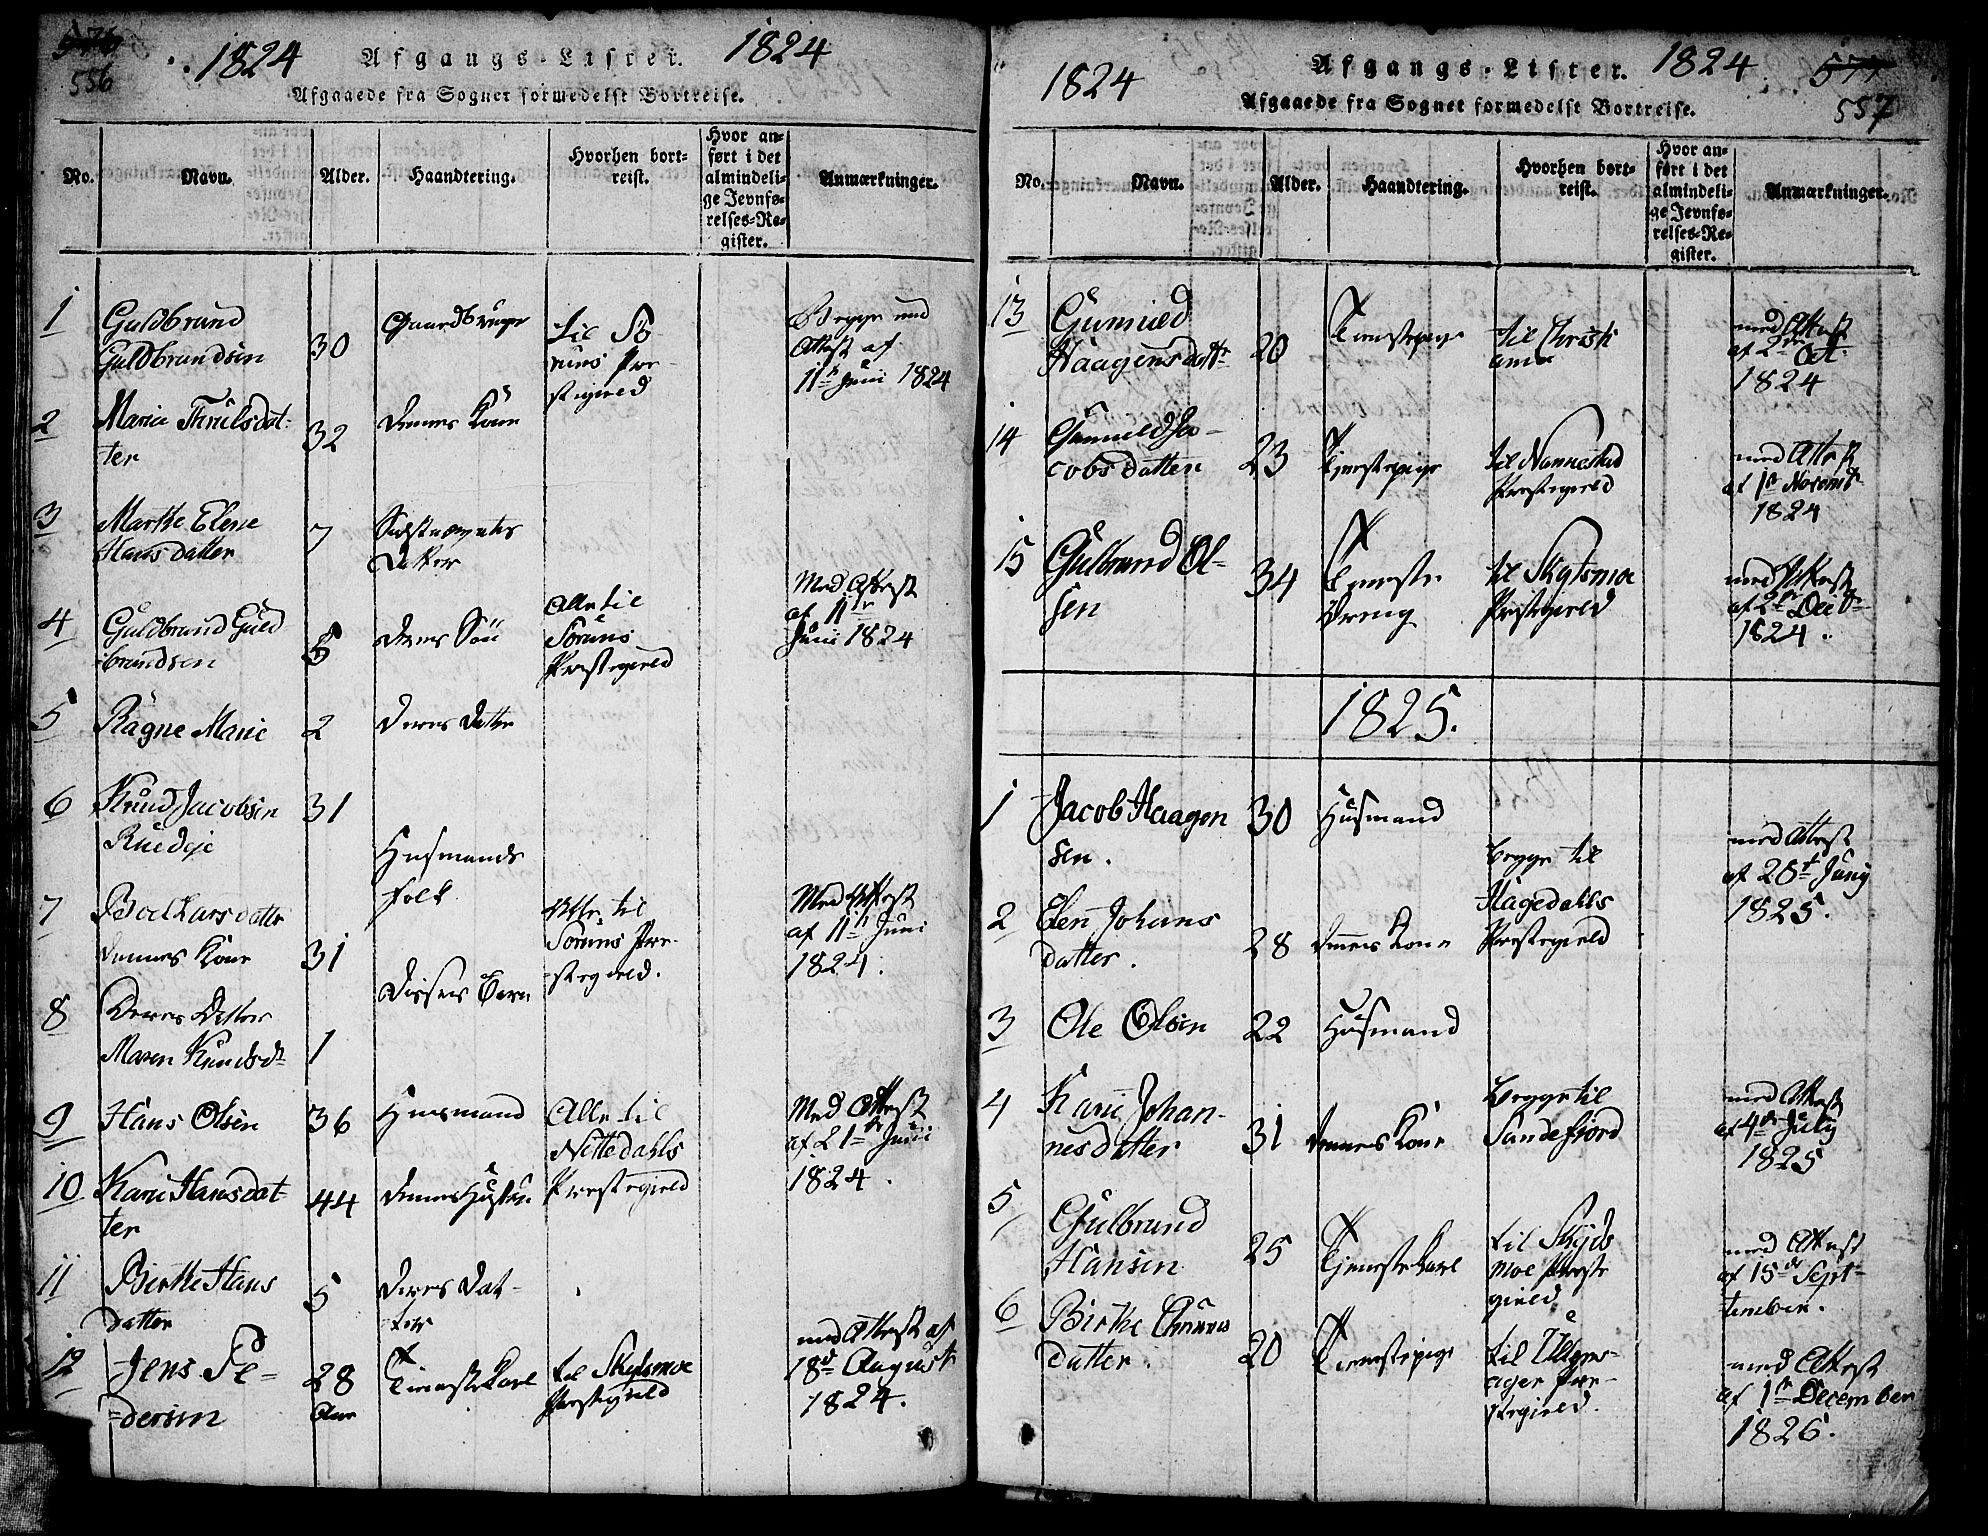 576
556
1824 Afgangs-Lister. 1824
Afgaaede fra Sognet formedelst Bortreise.
No. Navn. Alder. Haandtering. Hvorhen bortreist. Hvor anført i det almindelige Jevnførelses-Register. Anmærkninger.
1 Guldbrand Guldbrandsen 30 Gaardbruger til Sørums Præstegield Begge med Attest af 11te Juni 1824
2 Marie Thrulsdatter 32 dennes Kone
3 Marthe Elene Hansdatter 7 Datter
4 Guldbrand Guldbrandsen 5 deres Søn Alle til Sørums Præstegield Med Attest af 11te Juni 1824
5 Ragne Marie 2 deres Datter
6 Knud Jacobsen 31 Husmands folk
7 Boel Larsdatter dennes Kone 31 Alle til Sørums Præstegield. Med Attest af 11te Juni 1824.
8 Deres Datter Maren Knudsdr 1 disses Barn
9 Hans Olsen 36 Huusmand Alle til Nittedahls Præstegield Med Attest af 21de Juni 1824.
10 Kari Hansdatter 44 dennes Hustru
11 Birthe Hansdatter 5 deres Datter
12 Jens Pedersen 28 Aar Tienestekarl til Skydsmoe Præstegield med Attest af 18d August 1824.
577
557
1824 Afgangs-Lister. 1824
Afgaaede fra Sognet formedelst Bortreise.
No. Navn. Alder. Haandtering. Hvorhen bortreist. Hvor anført i det almindelige Jevnførelses-Register. Anmærkninger.
13 Gunnild Haagensdatr 20 Tienestepige til Christiania med Attest af 2den Oct. 1824
14 Gunnild Jacobsdatter 23 Tienestepige til Nannestad Præstegield med Attest af 1te Novembr 1824
15 Gulbrand Olsen 34 Tieneste Dreng til Skydsmoe Præstegield med Attest af 2de Decbr 1824.
1825.
1 Jacob Haagensen. 30 Husmand begge til Hagedahls Præstegield med Attest af 28t Juny 1825.
2 Elen Johansdatter. 28 dennes Kone
3 Ole Olsen 22 Husmand
4 Kari Johannesdatter 31 dennes Kone begge til Sandefjord med Attest af 4de July 1825
5 Gulbrand Hansen 25 Tjenestekarl til Skydsmoe Præstegield med Attest af 15de September.
6 Birthe datter. 20 Tienestepige til Ullensager Præstegield. med Attest af 1te December 1826.